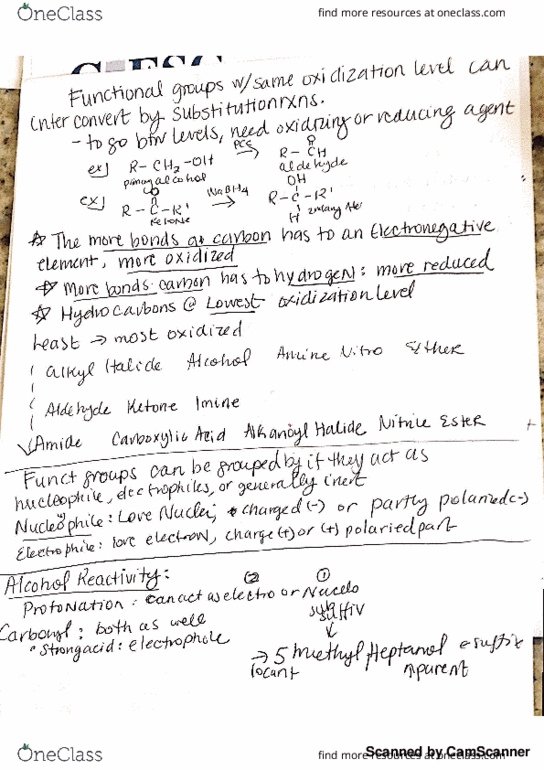 OneClass
find more resources at oneclass.com
Functional groups w/same oxidization level can
inter convert by substitution rxns.
- to go btw levels, need oxidizing or reducing agent
ex) R-CH2-OH PCC → R-CH O
primary alcohol aldehyde
ex) R-C-R' O NaBH4 → R-C-R' OH H
Ketone
☆ The more bonds a carbon has to an Electronegative
element, more oxidized
☆ More bonds carbon has to hydrogen: more reduced
☆ Hydrocarbons @ Lowest oxidization level
Least → most oxidized
Alkyl Halide Alcohol Amine Nitro Ether
Aldehyde Ketone Imine
Amide Carboxylic Acid Alkanoyl Halide Nitrile Ester
Funct groups can be grouped by if they act as
nucleophile, electrophiles, or generally inert
Nucleophile: Love Nuclei, charged (-) or partly polarized (-)
Electrophile: love electron, charge (+) or (+) polaried part
Alcohol Reactivity:
② ①
Protonation: can act as electro or Nucleo
Carbonyl: both as well
• Strong acid: electrophole
→ 5 methyl Heptanol suffix
locant parent
OneClass
find more resources at oneclass.com
Scanned by CamScanner